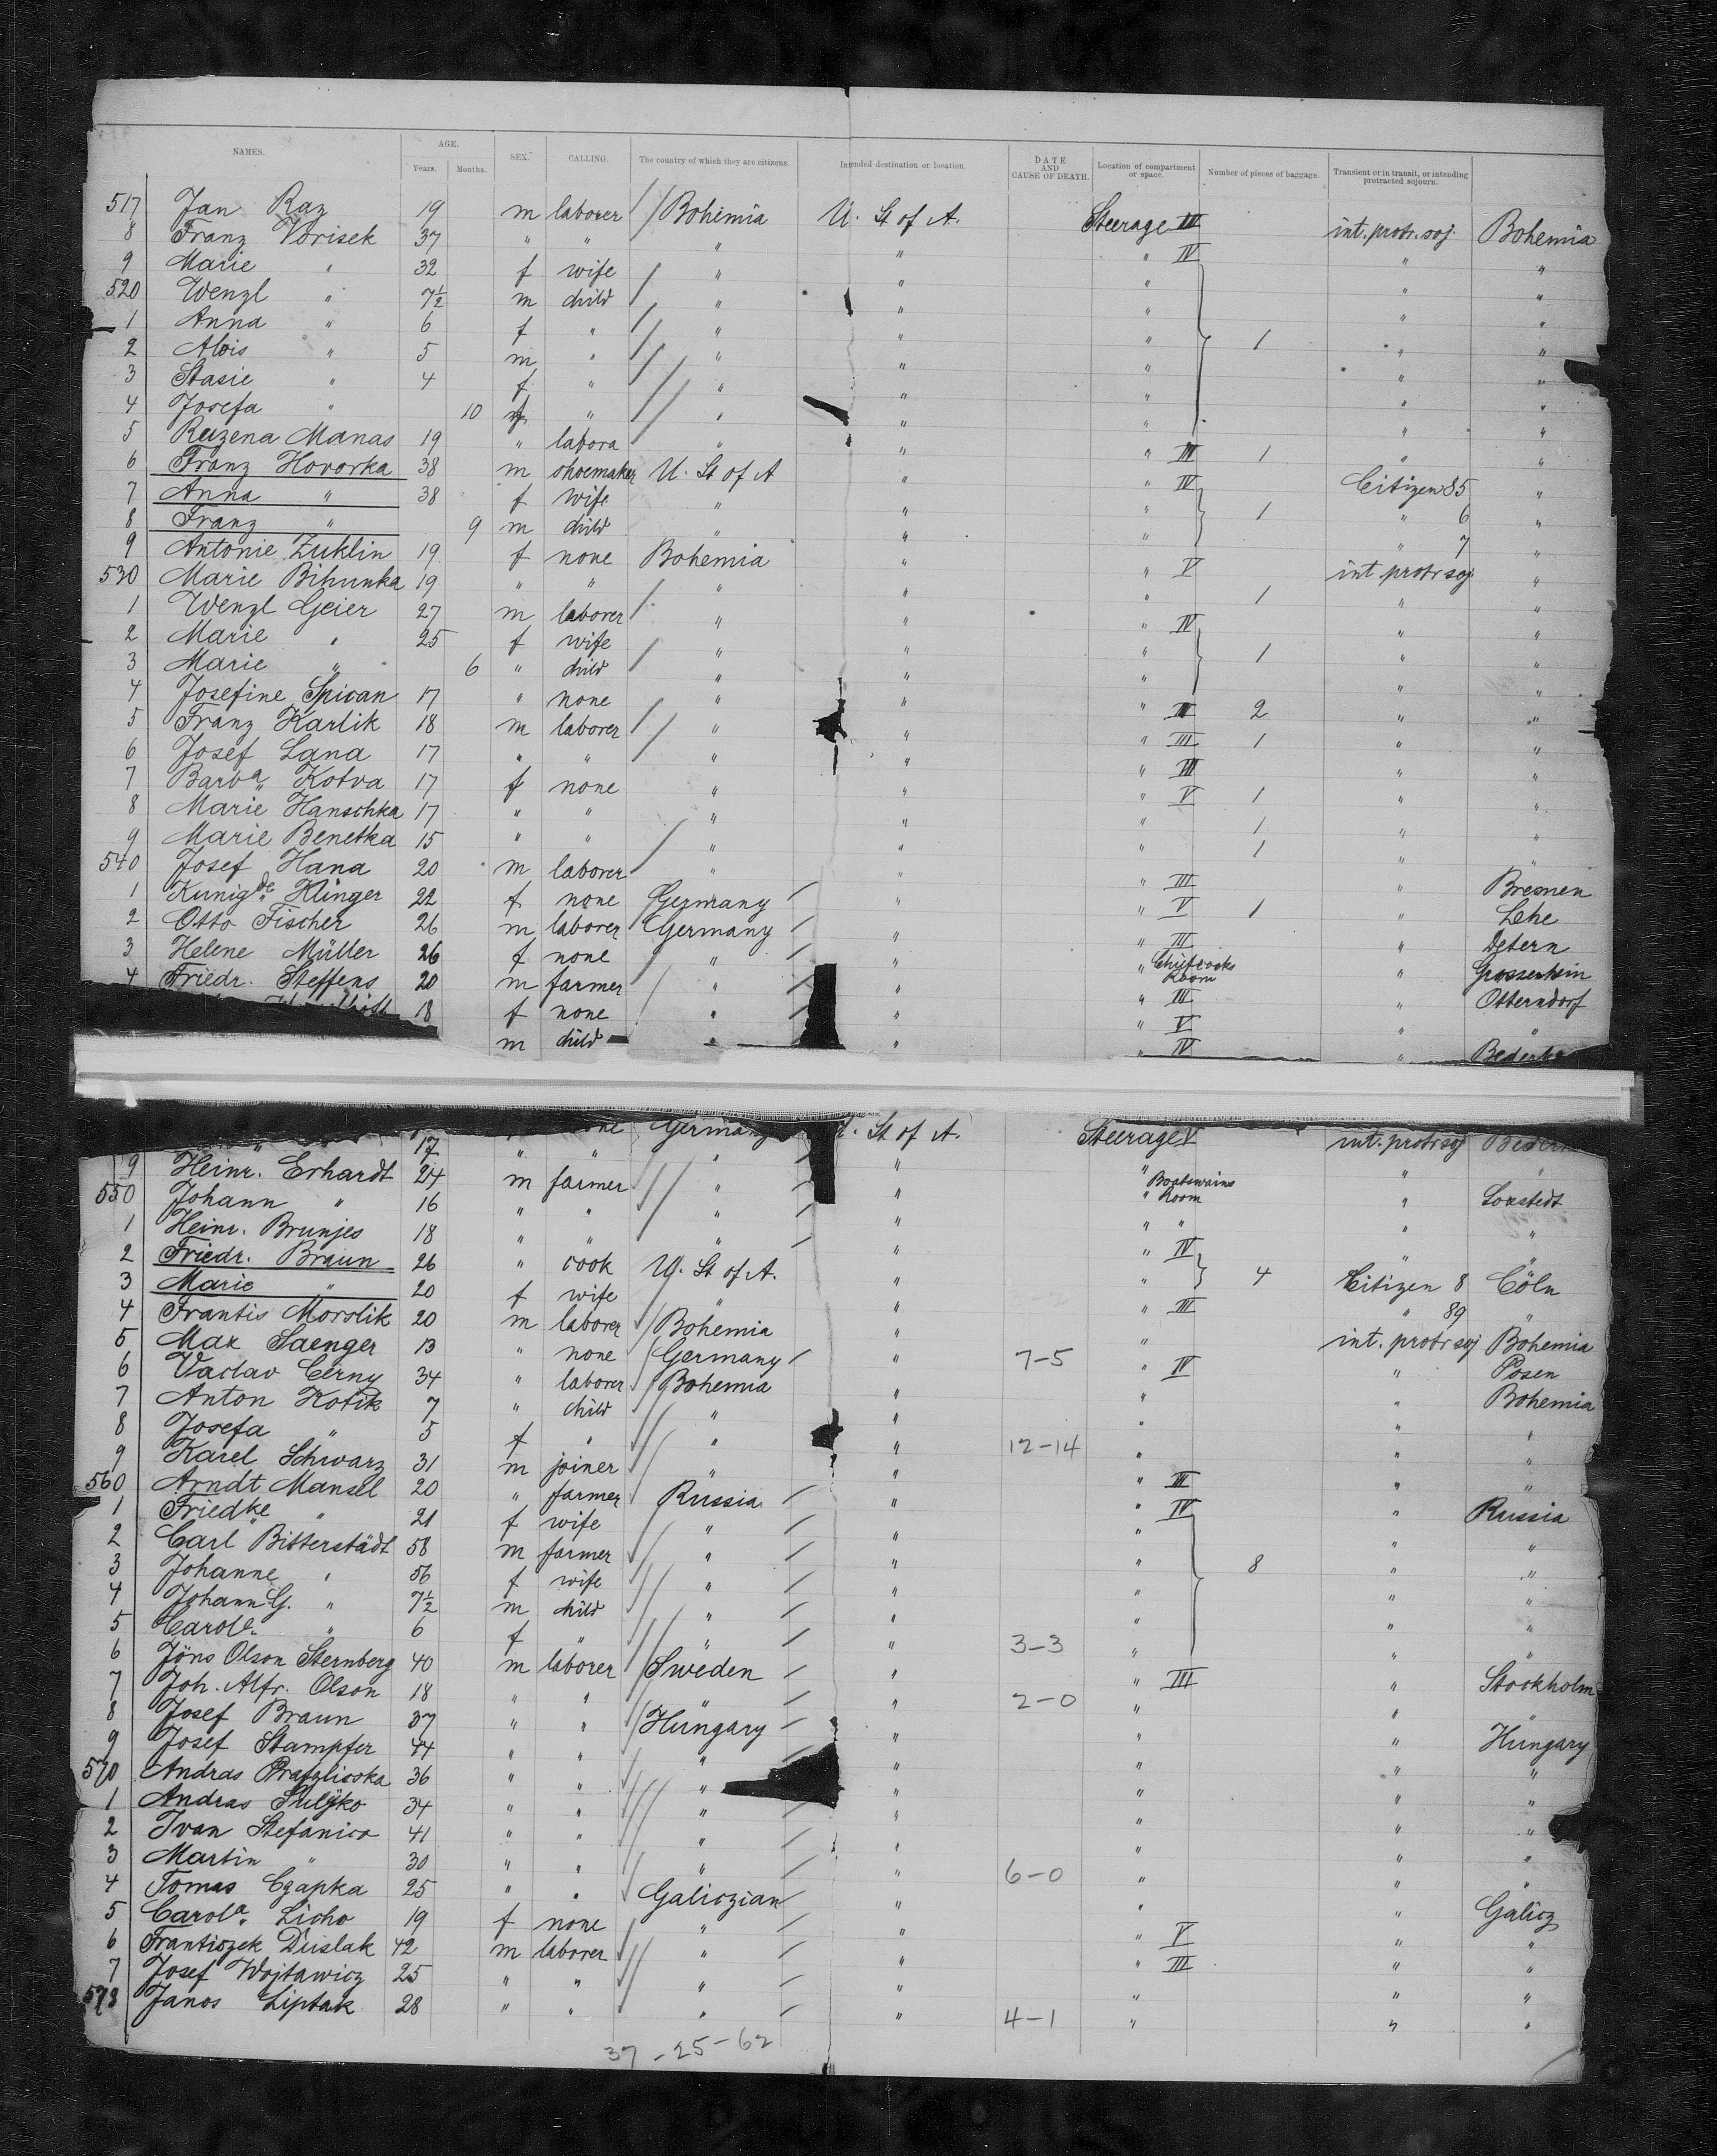 NAMES. AGE. Years. Months. SEX. CALLING. The country of which they are citizens. Intended destination or location. DATE AND CAUSE OF DEATH. Location of compartment or space. Number of pieces of baggage. Transient or in transit, or intending protracted sojourn.
517 Jan Raz 19 m laborer Bohemia U. St of A. Steerage IV int. protr. soj. Bohemia
8 Franz Vorisek 37 " " " " " IV " "
9 Marie " 32 f wife " " " " "
520 Wenzl " 7½ m child " " " " "
1 Anna " 6 f " " " " " "
2 Alois " 5 m " " " " 1 " "
3 Stasie " 4 f " " " " " "
4 Josefa " 10 f " " " " " "
5 Ruzena Manas 19 " labora " " " III 1 " "
6 Franz Hovorka 38 m shoemaker U. St of A " " IV Citizen 85 "
7 Anna " 38 f wife " " " 1 " 6 "
8 Franz " 9 m child " " " " 7 "
9 Antonie Zuklin 19 f none Bohemia " " V int. protr soj "
530 Marie Bihunka 19 " " " " " 1 " "
1 Wenzl Geier 27 m laborer " " " IV " "
2 Marie " 25 f wife " " " 1 " "
3 Marie " 6 " child " " " " "
4 Josefine Spivan 17 " none " " " III 2 " "
5 Franz Karlik 18 m laborer " " " III 1 " "
6 Josef Lana 17 " " " " " III " "
7 Barba Kotva 17 f none " " " V 1 " "
8 Marie Hanschka 17 " " " " " 1 " "
9 Marie Benetka 15 " " " " " 1 " "
540 Josef Hana 20 m laborer " " " III "
1 Kunigde Klinger 22 f none Germany " " V 1 " Bremen
2 Otto Fischer 26 m laborer Germany " " III " Lehe
3 Helene Müller 26 f none " " " Chiefcooks Room " Detern
4 Friedr. Steffens 20 m farmer " " " III " Grossenhein
18 f none " " " V " Otterndorf
m child " " " IV "
17 Germany St of A. Steerage V int. protr soj
9 Heinr. Erhardt 24 m farmer " " " Boatswains Room " "
550 Johann " 16 " " " " " " Loxstedt
1 Heinr. Brunjes 18 " " " " " IV " "
2 Friedr. Braun 26 " cook U. St of A. " " 4 Citizen 8 Cöln
3 Marie " 20 f wife " " " 89 "
4 Frantis Morslik 20 m laborer Bohemia " " III int. protr soj Bohemia
5 Max Saenger 13 " none Germany " 7-5 " " Posen
6 Vaclav Cerny 34 " laborer Bohemia " " IV " Bohemia
7 Anton Kotik 7 " child " " " " "
8 Josefa " 5 f " " " 12-14 " " "
9 Karel Schwarz 31 m joiner " " " III " "
560 Arndt Mansel 20 " farmer Russia " " IV " Russia
1 Friedke " 21 f wife " " " " "
2 Carl Bitterstädt 58 m farmer " " " 8 " "
3 Johanne " 56 f wife " " " " "
4 Johann G. " 7½ m child " " " " "
5 Carole. " 6 f " " " 3-3 " " "
6 Jöns Olson Sternberg 40 m laborer Sweden " " III " Stockholm
7 Joh. Alfr. Olson 18 " " " " 2-0 " " "
8 Josef Braun 37 " " Hungary " " " Hungary
9 Josef Stampfer 44 " " " " " " "
570 Andras 36 " " " " " " "
1 Andras Sulyko 34 " " " " " " "
2 Ivan Stefanico 41 " " " " " " "
3 Martin " 30 " " " " 6-0 " " "
4 Tomas Czapka 25 " " Galiczian " " " Galicz
5 Carola. Licho 19 f none " " " V " "
6 Frantiszek Duslak 42 m laborer " " " III " "
7 Josef Wojtawicz 25 " " " " " " "
578 Janos Liptak 28 " " " " 4-1 " " "
37-25-62